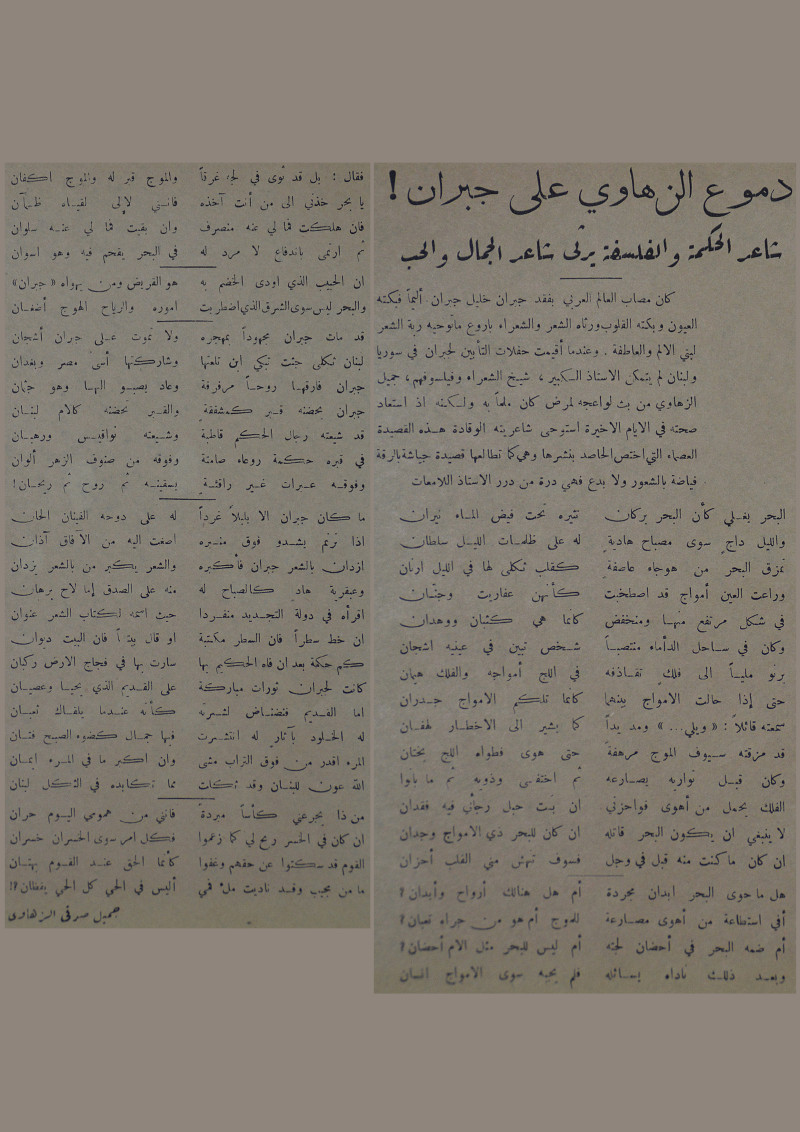 دموع الزهاوي على جبران !
شاعر الحكمة والفلسفة يرثى شاعر الجمال والحب
كان مصاب العالم العربي بفقد جبران خليل جبران أليماً فبكته
العيون وبكته القلوب ورثاه الشعر والشعراء باروع ما توحيه ربة الشعر
لبني الالم والعاطفة . وعندما أقيمت حفلات التأبين لجبران في سوريا
ولبنان لم يتمكن الاستاذ الكبير ، شيخ الشعراء وفيلسوفهم ، جميل
الزهاوي من بث لواعجه لمرض كان ملماً به ولكنه اذ استعاد
صحته في الايام الاخيرة استوحى شاعريته الوقادة هذه القصيدة
العصماء التي اختص الحاصد بنشرها وهي كما تطالعها قصيدة جياشة بالرقة
فياضة بالشعور ولا بدع فهي درة من درر الاستاذ اللامعات
البحر يغلي كأن البحر بركان تثيره تحت فيض الماء نيران
والليل داج سوى مصباح هادية له على ظلمات الليل سلطان
تمزق البحر من هوجاء عاصفة كقلب ثكلى لها في الليل ارنان
وراعت العين أمواج قد اصطخبت كأنهن عفاريت وجنّان
في شكل مرتفع منها ومنخفض كأنما هي كثبان ووهدان
وكان في ساحل الدأماء منتصباً شخص تبين في عينيه اشجان
يرنو ملياً الى فلك تقاذفه في اللج أمواجه والفلك هيمان
حتى إذا حالت الأمواج بينهما كأنما تلكم الامواج جدران
سمعته قائلاً : « ويلي... » ومد يداً كما يشير الى الاخطار لهفان
قد مزقته سيوف الموج مرهفة حتى هوى فطواه اللج بختان
وكان قبل تواريه يصارعه ثم اختفى وذووه ثم ما بانوا
الفلك يحمل من أهوى فواحزني ان بت حبل رجائي فيه فقدان
لا ينبغي ان يكون البحر قاتله ان كان للبحر ذي الامواج وجدان
ان كان ما كنت منه قبل في وجل فسوف تنهش مني القلب أحزان
هل ما حوى البحر ابدان مجردة أم هل هنالك أرواح وأبدان ؟
أفي استطاعة من أهوى مصارعة للموج أم هو من جراه تعبان ؟
أم ضمه البحر في أحضان لجته أم ليس للبحر مثل الام أحضان ؟
وبعد ذلك ناداه يسائله فلم يجبه سوى الامواج انسان
فقال : بل قد ثوى في لجه غرقاً والموج قبر له والموج اكفان
يا بحر خذني الى من أنت آخذه فانني لالى لقياه ظمآن
فان هلكت فما لي عنه منصرف وان بقيت فما لي عنه سلوان
ثم ارتمى باندفاع لا مرد له في البحر يفحم فيه وهو اسوان
ان الحبيب الذي اودى الخضم به هو القريض ومن يهواه « جبران »
والبحر ليس سوى الشرق الذي اضطربت اموره والرياح الهوج أضغان
قد مات جبران مجهوداً بمهجره ولا تموت على جبران أشجان
لبنان ثكلى جثت تبكي ابن تلعتها وشاركتها أسى مصر وبغدان
جبران فارقها روحاً مرفرفة وعاد يصبو اليها وهو جثمان
جبران يحضنه قبر كمشفقة والقبر تحضنه كلام لبنان
قد شيعته رجال الحكم قاطبة وشيعته نواقيس ورهبان
في قبره حكمة روعاء صامتة وفوقه من صنوف الزهر ألوان
وفوقه عبرات غير راقئة يسقينه ثم روح ثم ريحان !
ما كان جبران الا بلبلاً غرداً له على دوحه الفينان الحان
اذا ترنم يشدو فوق منبره اصغت اليه من الآفاق آذان
ازدان بالشعر جبران فأكبره والشعر يكبر من بالشعر يزدان
وعبقرية هاد كالصباح له منه على الصدق إما لاح برهان
اقرأه في دولة التجديد منفرداً حيث اسمه لكتاب الشعر عنوان
ان خط سطراً فان السطر مكتبة او قال بيتاً فان البيت ديوان
كم حكمة بعد ان فاه الحكيم بها سارت بها في فجاج الارض ركبان
كانت لجبران ثورات مباركة على القديم الذي يحيا وعصيان
اما القديم فنضناض لشرته كأنه عندما يلقاك ثعبان
له الخلود بآثار له انتشرت فيها جمال كضوء الصبح فتان
المرء اقدر من فوق التراب مشى وان اكبر ما في المرء ايمان
الله عون للبنان وقد ثكلت مما تكابده في الثكل لبنان
من ذا يجرعني كأساً مبردة فانني من همومي اليوم حران
ان كان في الخسر ربح لي كما زعموا فكل امر سوى الخسران خسران
القوم قد سكتوا عن حقهم وغفوا كأنما الحق عند القوم بهتان
ما من مجيب وقد ناديت ملء فمي أليس في الحي كل الحي يقظان ؟!
جميل صدقي الزهاوي